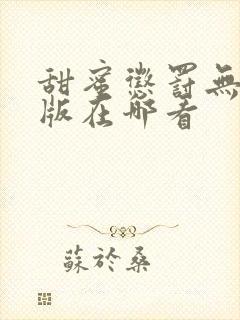 甜蜜懲罰無
版在哪看
蘇於桑